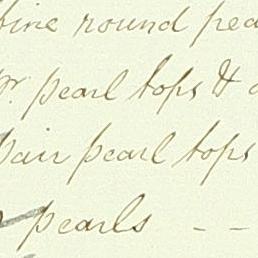 fine round pea
pr. pearl tops & d
pair pearl tops
pearls - -